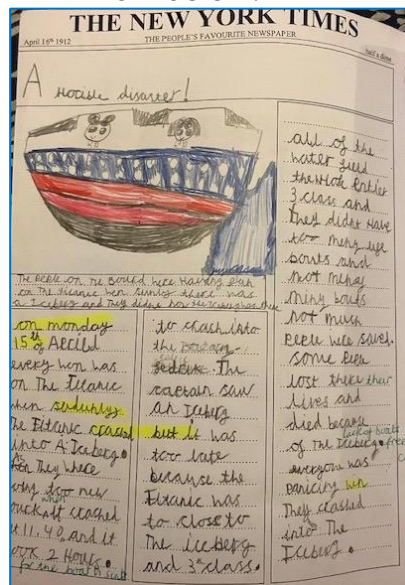 THE NEW YORK TIMES
April 16th 1912
THE PEOPLE'S FAVOURITE NEWSPAPER
half a dime
A Hocible disarser!
The Peple on me Bourd were Having Fun
on The titanic wen sunnly there was
a Iceberg and They didne now
on monday
15th of Apcild
every won was
on The Titanic
when sudunhly
The Titanic crached
into A Iceberg.
As They where
too new
when crached
11,40 and it
ook 2 Hours.
for the boat to sink
to crash into
the
The
captain saw
an Iceberg
but it was
too late
because the
Titanic was
to close to
The iceberg
and 3rd class.
all of the
water filld
the
3 class and
They didnt Have
too meny life
boates and
not meney
meny bouts
not much
Peple wee saved.
some Peple
lost there their
lives and
died because
lack of boats
of The Iceberg.
everyone was
panicing wen
They crashed
into The
Iceberg.